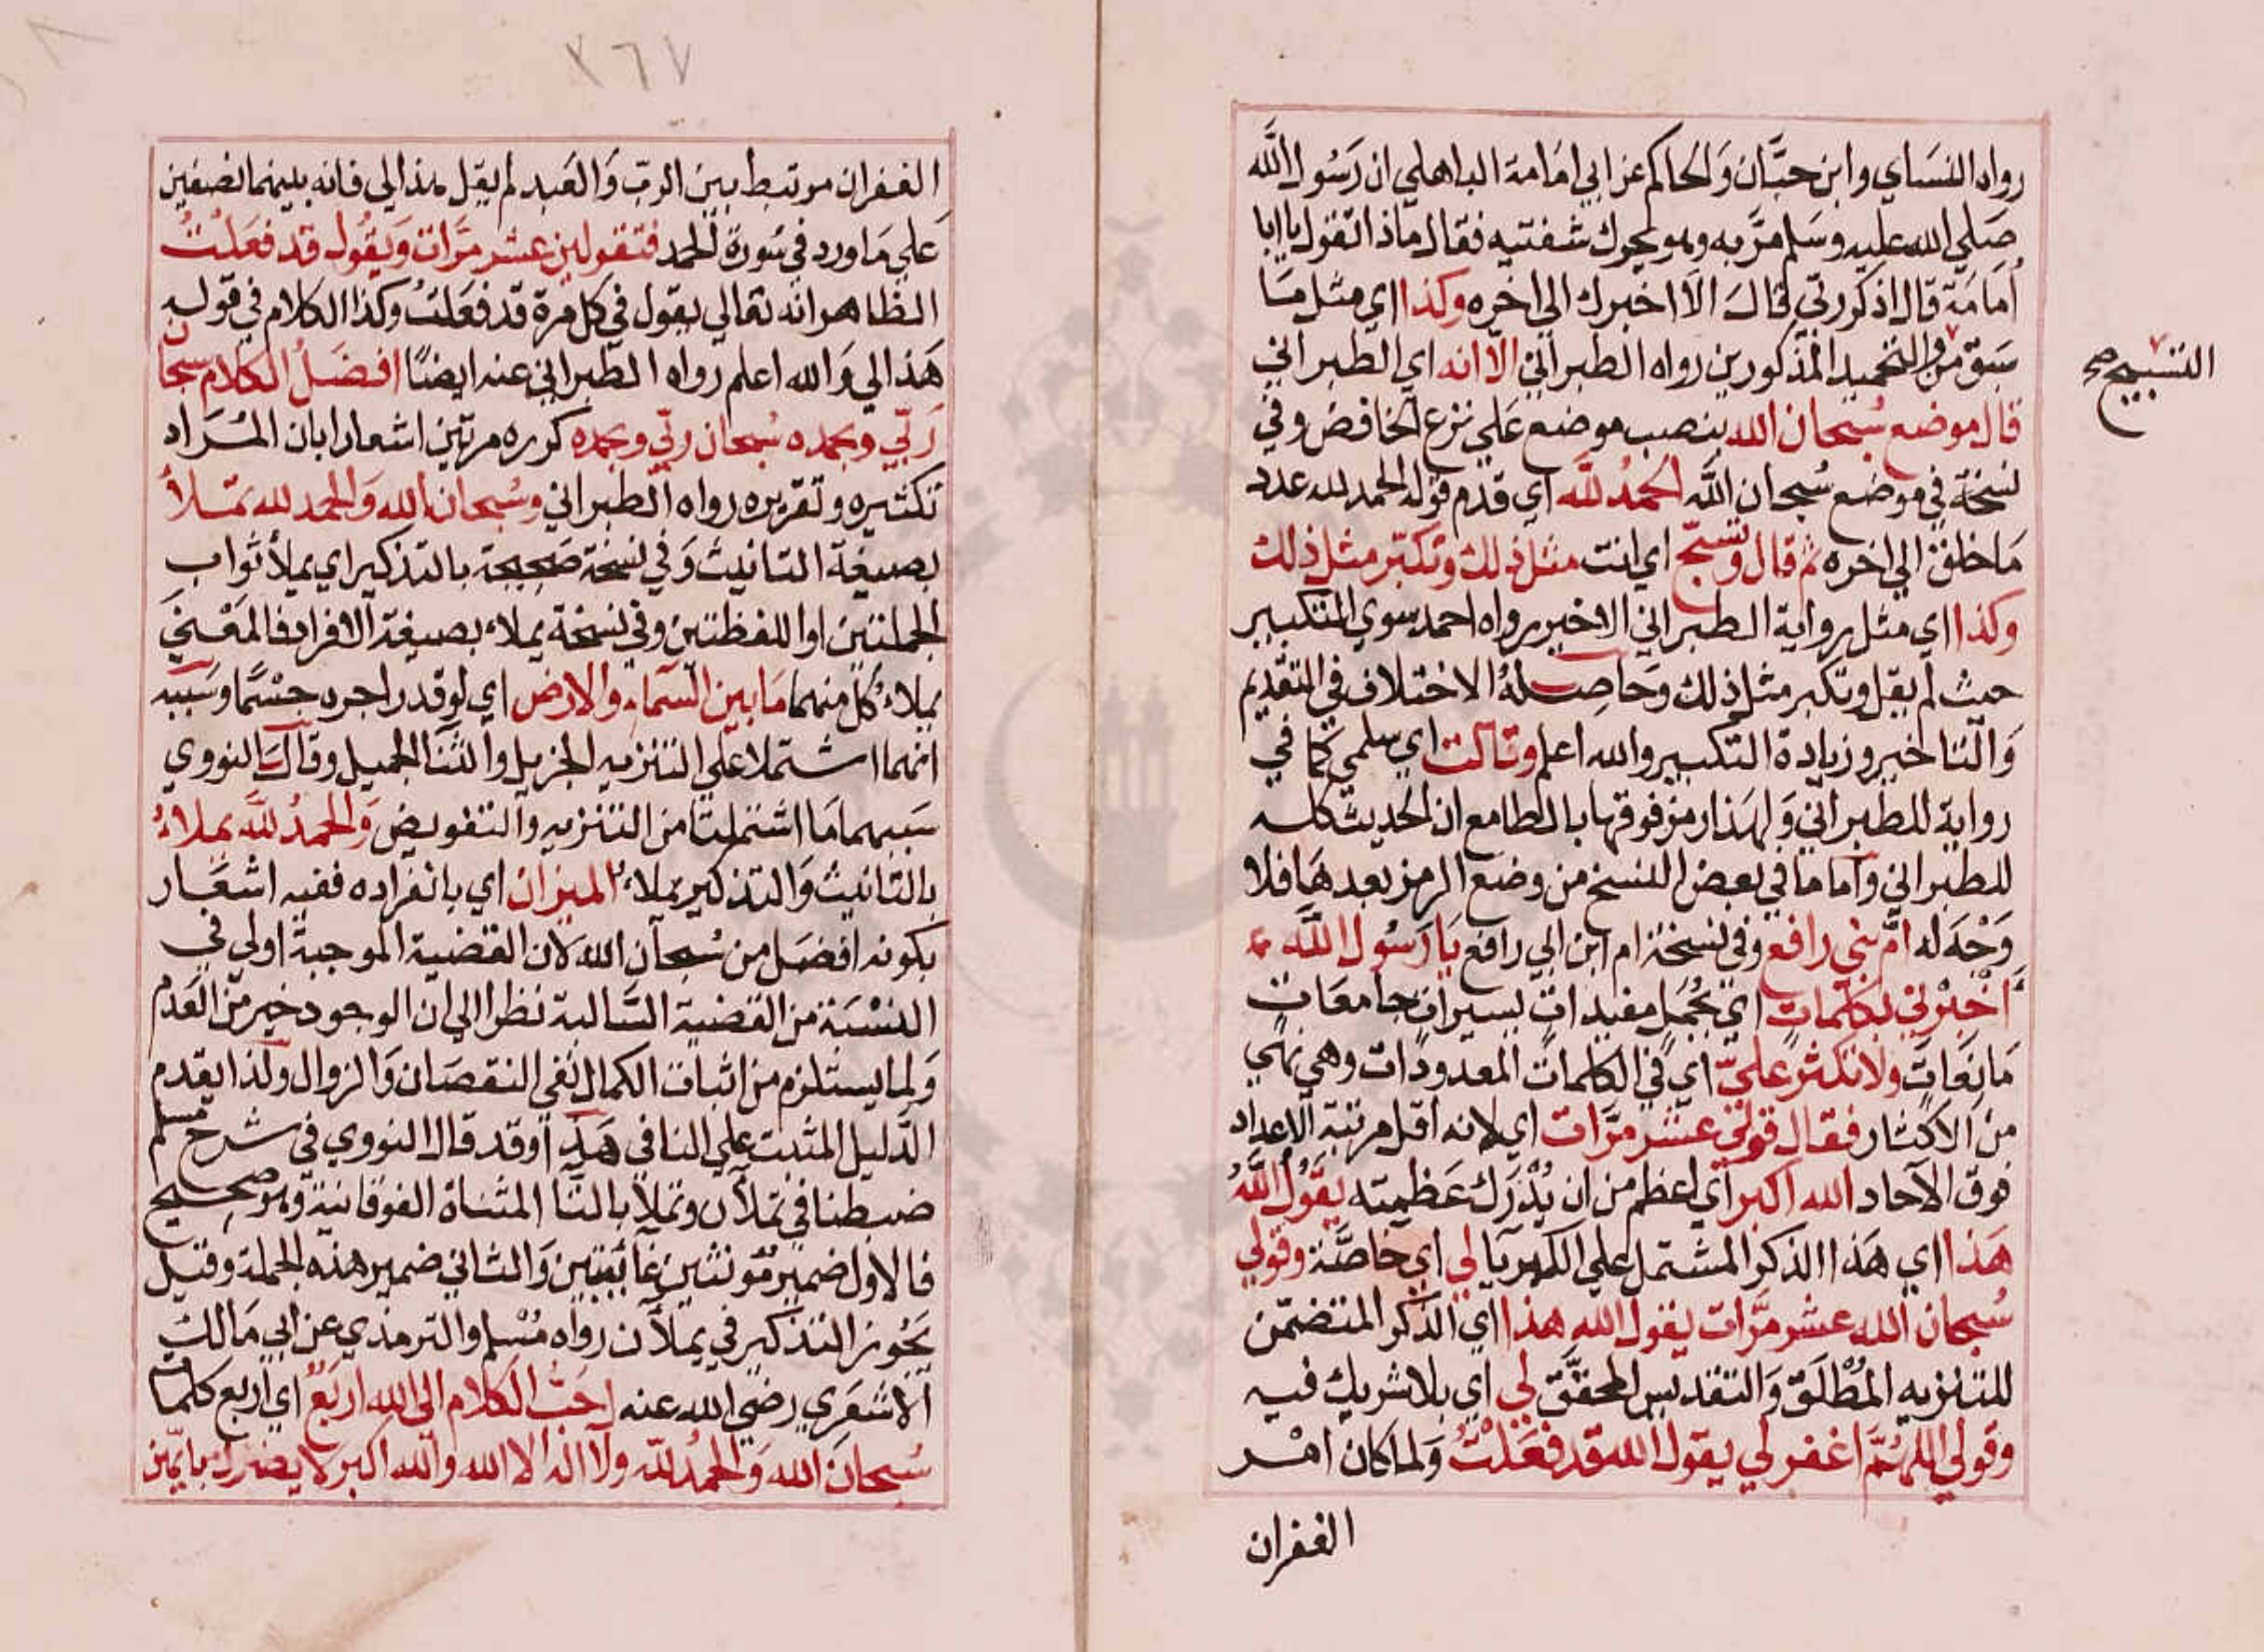 رواه النساي وابن حبَّان وَالحاكم عن ابي امَامة الباهلي ان رَسُول الله
صَلي الله عليه وسَلم مرَّ به وهو يحرك شفتيه فقال ماذا تقول يا ابا
أمَامَة قال اذكر ربّي قال الا اخبرك الي اخره وكذا اي مثل مَا
سَبق من والتحميد المذكورين رواه الطبراني الّا انه اي الطبراني
التسبيح صح
قال موضع سُبحان الله بنصب موضع عَلي نزع الخافض وفي
نسخة في موضع سُبحان الله الحمدُ لله اي قدم قوله الحمد لله عدد
مَا خلق الي اخره ثم قال وتسبّح اي انت مثل ذلك وتكبّر مثل ذلك
وكذا اي مثل رواية الطبراني الاخير رواه احمد سوي التكبير
حيث لم يقل وتكبر مثل ذلك وحَاصلهُ الاختلاف في التقديم
وَالتاخير وزيادة التكبير والله اعلم وقالت اي سلمي كما في
رواية للطبراني وَلهذا رمز فوقها بالطا مع ان الحديث كله
للطبراني وَاما ما في بعض النسخ من وضع الرمز بعدهَا فلا
وَجْهَ له امّ بني رافع وفي نسخة ام ابن ابي رافع يَا رَسُول الله
أخبرني بكلمات اي بجُمَل مفيدات يسيرات جامعَات
مَانعَات ولا تكثر عليّ اي في الكلمات المعدودات وهي نهي
من الاكثار فقال قولي عشر مرَّات اي لانه اقل مرتبة الاعداد
فوق الآحاد الله اكبر اي اعظم من ان يُدْرَك عَظميته يقُول اللهُ
هَذا اي هَذا الذكر المشتمل علي الكبريا لي اي خاصَّة وقولي
سُبحان الله عشر مرَّات يقول الله هذا اي الذكر المتضمّن
للتنزيه المُطْلَق وَالتقديس المحقَّق لي اي بلا شريك فيه
وقولي اللهُمَّ اغفر لي يقول الله قد فعَلْتُ وَلما كان امْر
الغفران
٣٦٧
الغفران مرتبط بين الربّ وَالعَبد لم يقل هذا لي فانه بينهما نصفين
عَلي مَا ورد في سُورة الحمد فتقولين عشر مرَّات وَيقُول قد فعَلتُ
الظاهر انّه تعَالي يقول في كل مرة قد فعَلتُ وكذا الكلام في قوله
هَذا لي وَالله اعلم رواه الطبراني عنه ايضًا افضَلُ الكلام سبحان
رَبّي وبحمده سُبحان ربّي وبحمده كرره مرتين اشعارا بان المُرَاد
تكثيره وتقريره رواه الطبراني وسُبحان الله وَالحمد لله تملأ
بصيغة التانيث وَفي نسخة صَحيحة بالتذكير اي يملأ ثواب
الجملتين او اللفظتين وفي نسخة يملاء بصيغة الافراد فالمَعْني
يملاء كلّ منهما مَا بين السّماء والارض اي لو قدر اجره جسْمًا وسَببه
انهما اشتملا علي التنزيه الجزيل والثنا الجميل وقالَ النووي
سَببهما مَا اشتملتا من التنزيه وَالتفويض وَالحمدُ للهِ يملاءُ
بالتانيث وَالتذكير يملاء الميزان اي بانفراده ففيه اشعَار
بكونه افضَل من سُبحان الله لان القضية الموجبة اولي في
النسْبَة من القضية السَّالبة نظرا الي ان الوجود خير من العَدم
وَلما يستلزم من اثبات الكمال نفي النقصَان وَالزوال ولذا يقدم
الدّليل المثبت علي النافي هَذا وقد قال النووي في شرح مسلم
ضبطنا في تملآن وتملأ بالتّا المثناة الفوقانية وهو صحيح
فالاول ضمير مُؤنثين غائبتين وَالثاني ضمير هذه الجملة وقيل
يَجُوز التذكير في يملآن رواه مُسْلم والترمذي عن ابي مَالك
الاشعَري رضي الله عنه احَبُّ الكلام الي الله اربَعٌ اي اربع كلمات
سُبحانَ الله وَالحمدُ لله ولا اله الا الله والله اكبر لا يضرك بايّهن